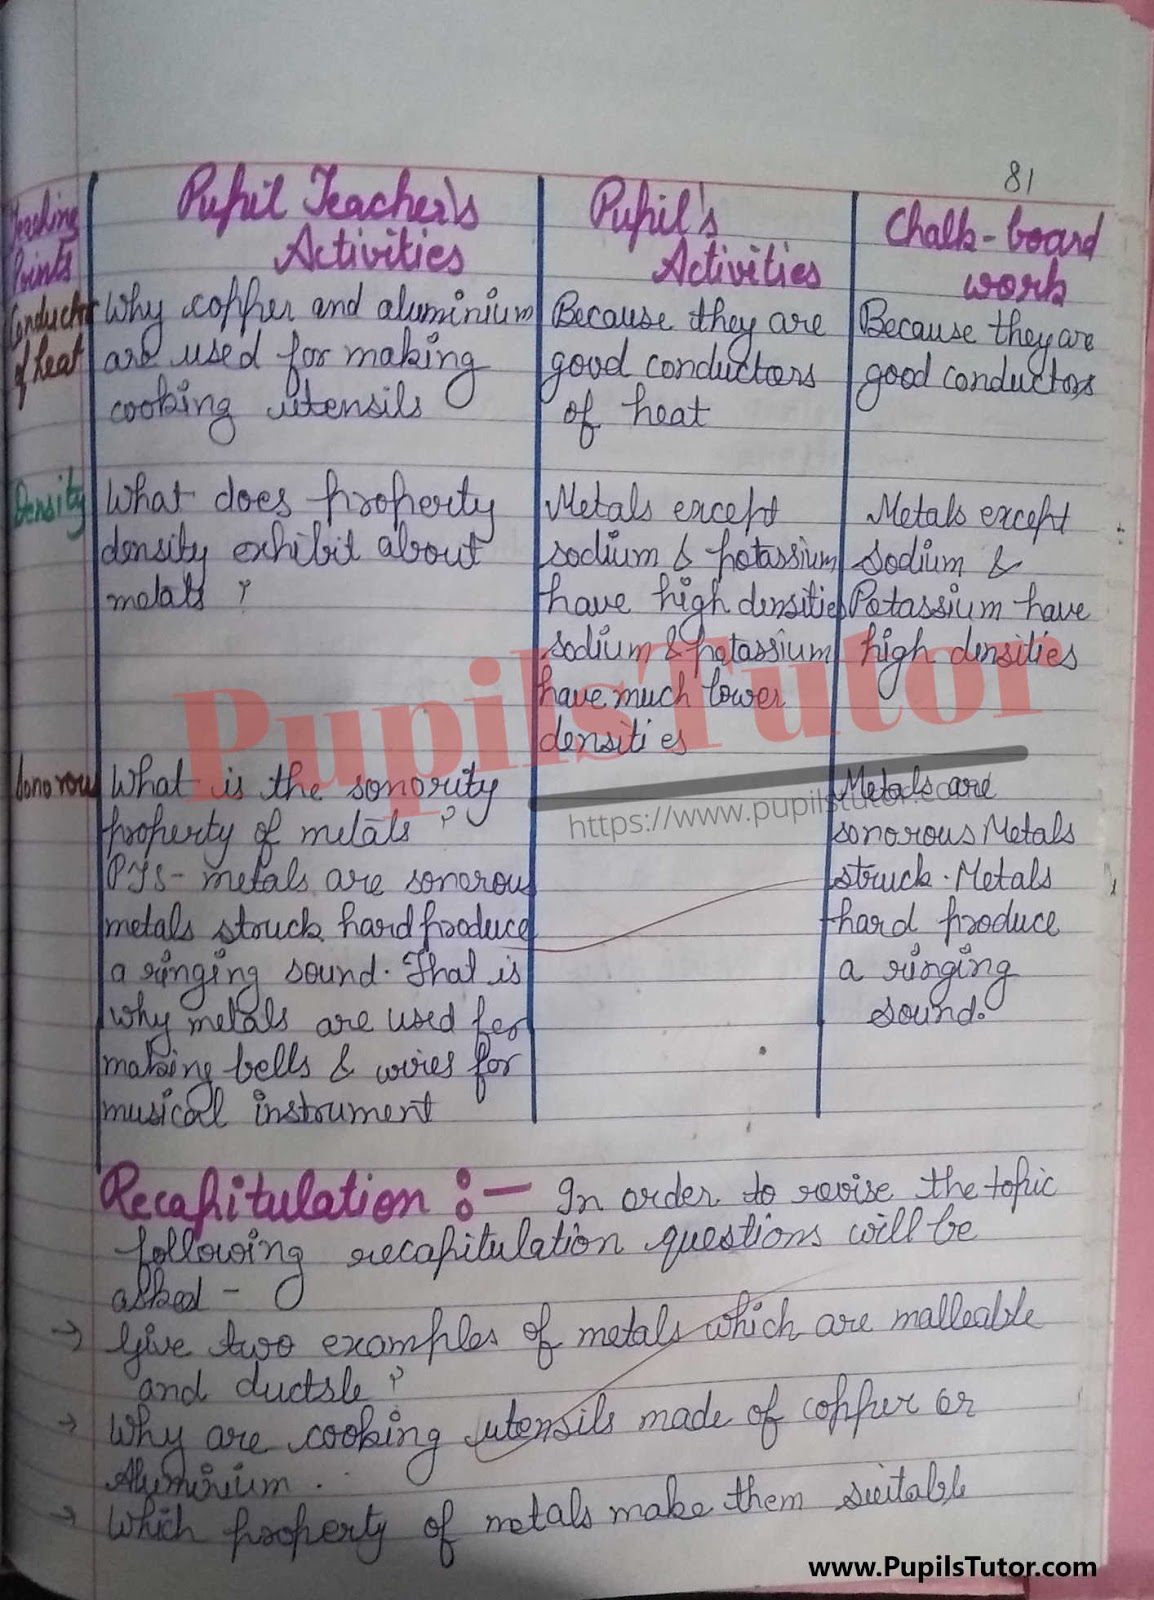 81
Teaching Points
Pupil Teacher's
Activities
Pupil's
Activities
Chalk-board
work
Conductor
of heat
Why copper and aluminium
are used for making
cooking utensils
Because they are
good conductors
of heat
Because they are
good conductors
Density
What does property
density exhibit about
metals ?
Metals except
sodium & potassium
have high densities
sodium & potassium
have much lower
densities
Metals except
Sodium &
Potassium have
high densities
Sonorous
What is the sonority
property of metals ?
PTS- metals are sonorous
metals struck hard produce
a ringing sound. That is
why metals are used for
making bells & wires for
musical instrument
Metals are
sonorous Metals
struck. Metals
hard produce
a ringing
sound.
PupilsTutor
https://www.pupilstutor.com
Recapitulation :- In order to revise the topic
following recapitulation questions will be
asked -
→ Give two examples of metals which are malleable
and ductsle ?
→ Why are cooking utensils made of copper or
Aluminium .
→ Which property of metals make them suitable
www.PupilsTutor.com